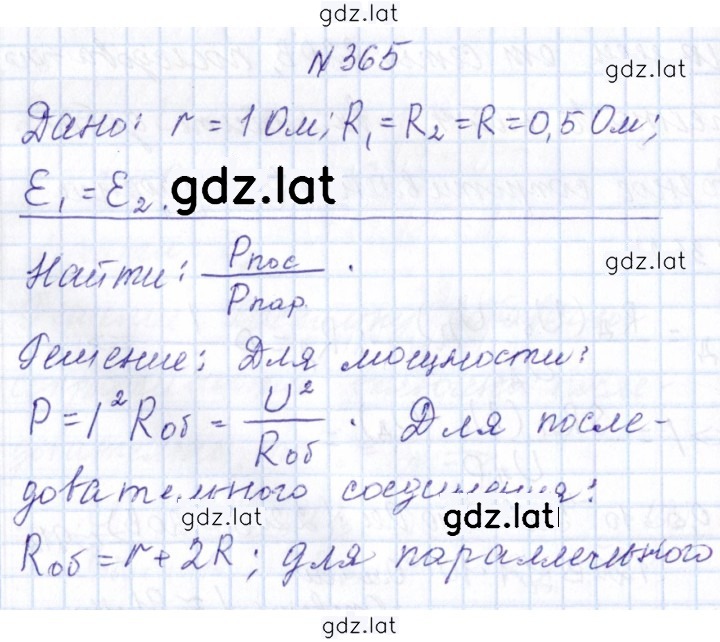 gdz.lat
№ 365
gdz.lat
Дано: r = 1 Ом; R₁ = R₂ = R = 0,5 Ом;
ℰ₁ = ℰ₂.
gdz.lat
Найти: Pпос / Pпар.
gdz.lat
Решение: Для мощности:
P = I² Rоб = U² / Rоб. Для после-
довательного соединения:
gdz.lat
gdz.lat
Rоб = r + 2R; для параллельного
gdz.lat